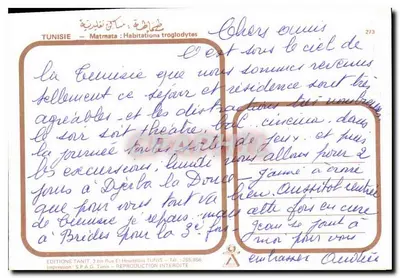 مطماطة : مساكن تقليدية
TUNISIE - Matmata : Habitations troglodytes
273
Chers amis
C'est sous le ciel de
la Tunisie que nous sommes revenus
tellement ce séjour et résidence sont très
agréables - et les distractions très nombreuses
le soir soit théâtre, bal, cinéma, dans
la journée toutes sortes de jeux - et puis
les excursions, lundi nous allons pour 2
jours à Djerba la Douce - J'aime à croire
que pour vous tout va bien. Aussitôt rentrée
de Tunisie je repars mais cette fois en cure
à Brides pour la 3e fois - Jean se joint à
moi pour vous
embrasser Andrée
EDITIONS TANIT
REPRODUCTION INTERDITE